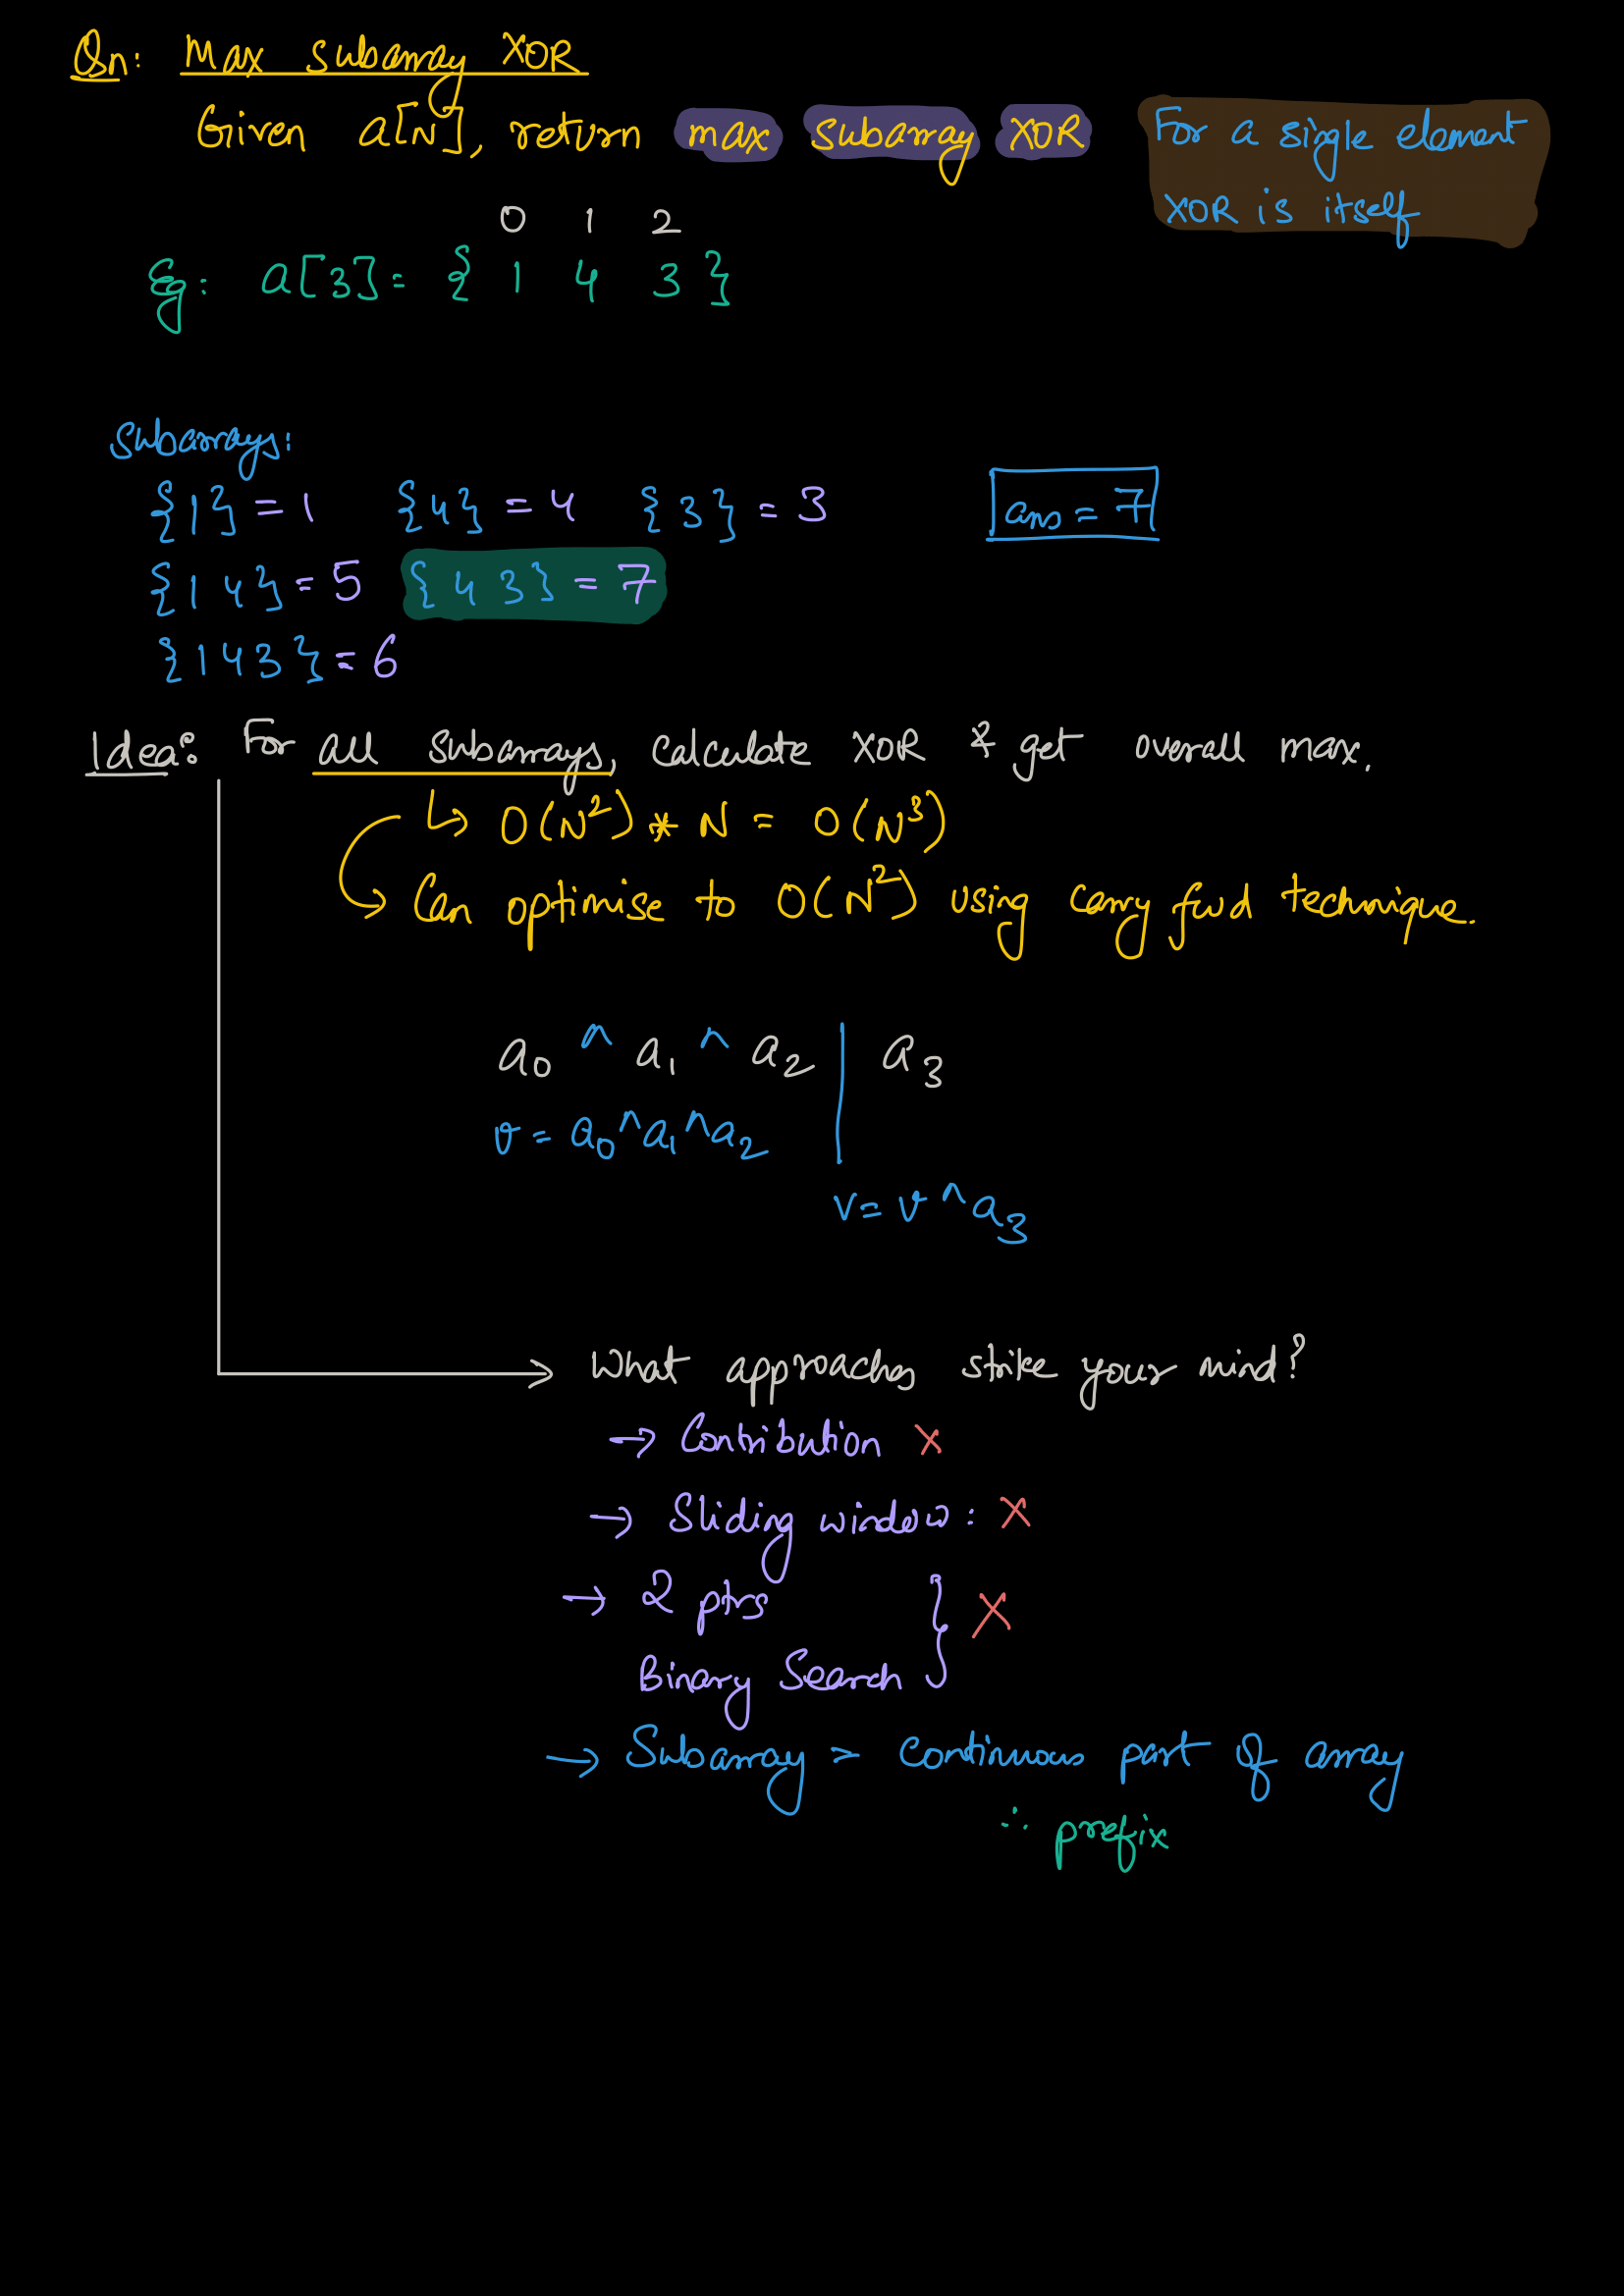 Qn: Max subarray XOR
Given a[N], return max subarray XOR
For a single element
XOR is itself
0 1 2
Eg: a[3] = { 1 4 3 }
Subarrays:
{1} = 1 {4} = 4 {3} = 3
ans = 7
{1 4} = 5 {4 3} = 7
{1 4 3} = 6
Idea: For all subarrays, calculate XOR & get overall max.
↳ O(N²) * N = O(N³)
→ Can optimise to O(N²) using carry fwd technique.
a₀ ^ a₁ ^ a₂ | a₃
v = a₀^a₁^a₂
v = v^a₃
→ What approaches strike your mind?
→ Contribution ✗
→ Sliding window: ✗
→ 2 ptrs
Binary Search } ✗
→ Subarray = continuous part of array
∴ prefix